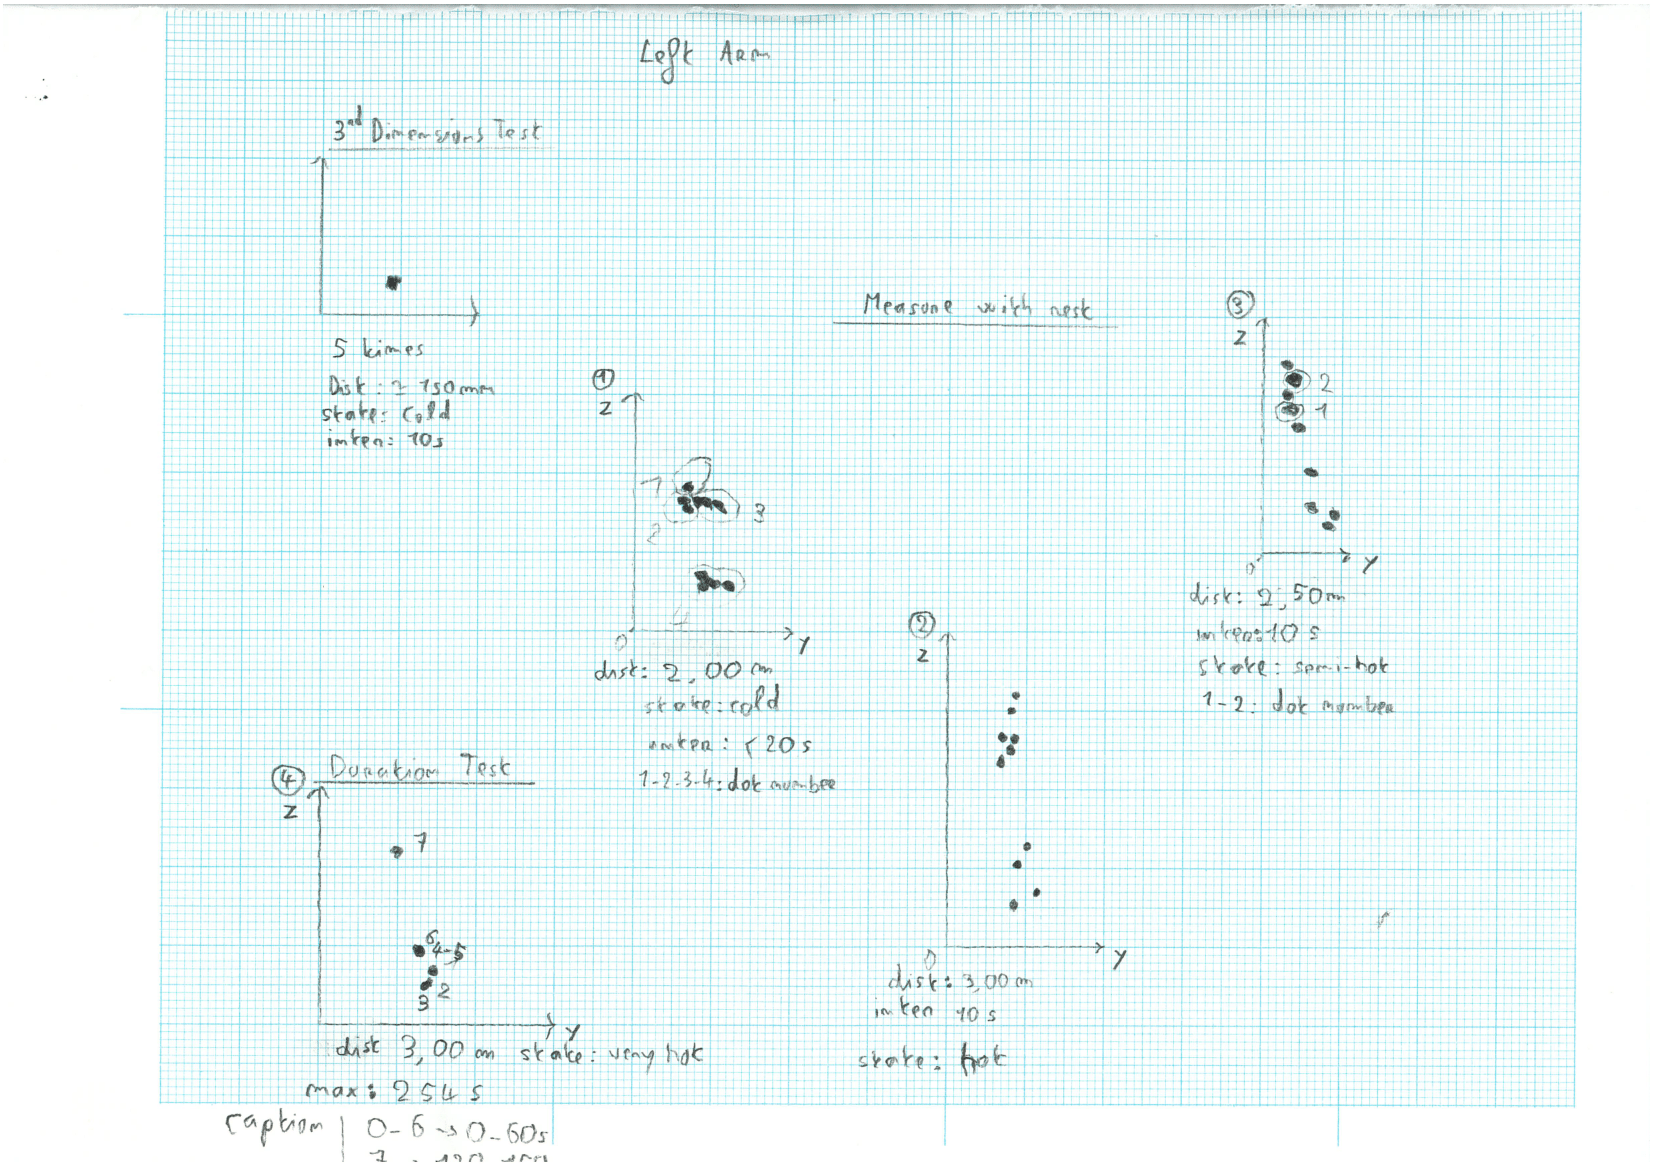 Left Arm
3rd Dimensions Test
5 times
Dist: ≃ 150mm
state: Cold
inter: 10s
Measure with rest
1
Z
1
2
3
4
0
Y
dist: 2,00 m
state: cold
inter: < 20s
1-2-3-4: dot number
3
Z
2
1
0
Y
dist: 2,50m
inter: 10 s
state: semi-hot
1-2: dot number
2
Z
0
Y
dist: 3,00 m
inter 10 s
state: hot
4 Duration Test
Z
7
6
4-5
2
3
Y
dist 3,00 m state: very hot
max: 254 s
caption | 0-6 → 0-60s
7